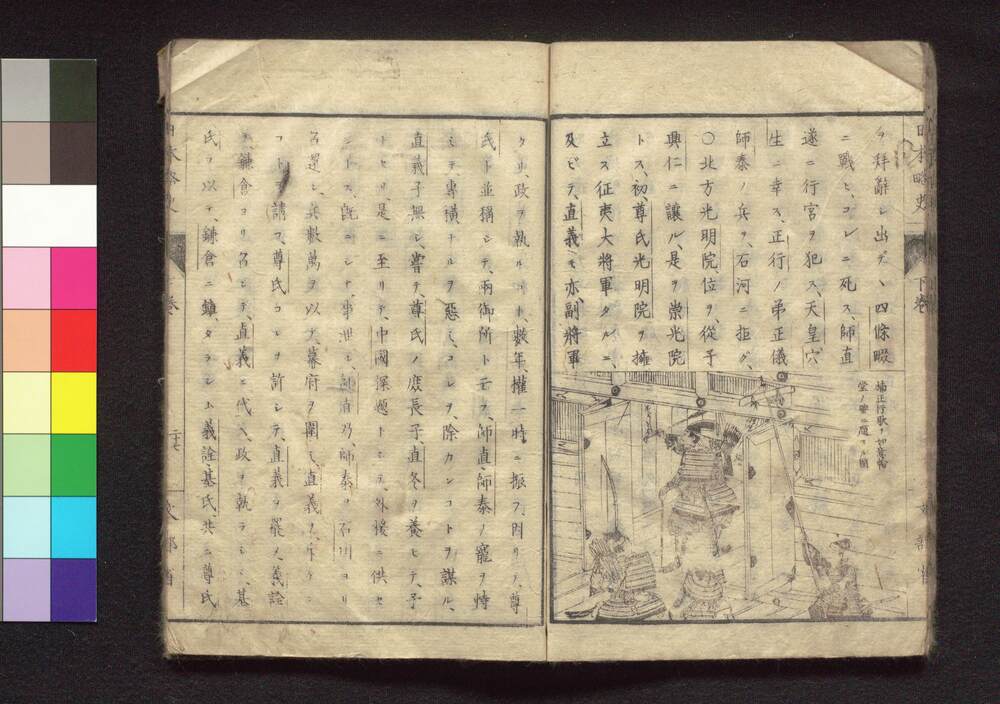 ヲ拜辭シ出デ、四條畷
ニ戰ヒ、コレニ死ス、師直
遂ニ行宮ヲ犯ス、天皇穴
生ニ幸ス、正行ノ弟正儀
師泰ノ兵ヲ、石河ニ拒グ、
〇北方光明院、位ヲ、從子
興仁ニ讓ル、是ヲ崇光院
トス、初、尊氏光明院ヲ擁
立ス征夷大將軍タルニ、
及ビテ、直義モ亦、副將軍
楠正行歌ヲ如意輪
堂ノ壁ニ題スル圖
タリ、政ヲ執ルコト、數年、權一時ニ振フ、因リテ、尊
氏ト並稱シテ、兩御所ト云フ、師直、師泰ノ寵ヲ恃
ミテ、專横ナルヲ惡ミ、コレヲ、除カンコトヲ謀ル、
直義子無シ、嘗テ、尊氏ノ庶長子、直冬ヲ養ヒテ、子
トセリ、是ニ至リテ、中國探題トシテ、外援ニ供セ
ントス、既ニシテ、事泄レ、師直乃、師泰ヲ石川ヨリ
召還シ、兵數萬ヲ以テ、幕府ヲ圍ミ、直義ヲ
コトヲ請フ、尊氏コレヲ許シテ、直義ヲ罷メ、義詮
ヲ、鎌倉ヨリ召シテ、直義ニ代ヘ、政ヲ執ラシメ、基
氏ヲ以テ、鎌倉ニ鎭タラシム、義詮、基氏、共ニ尊氏
日本略史
下卷
二十七
文部省